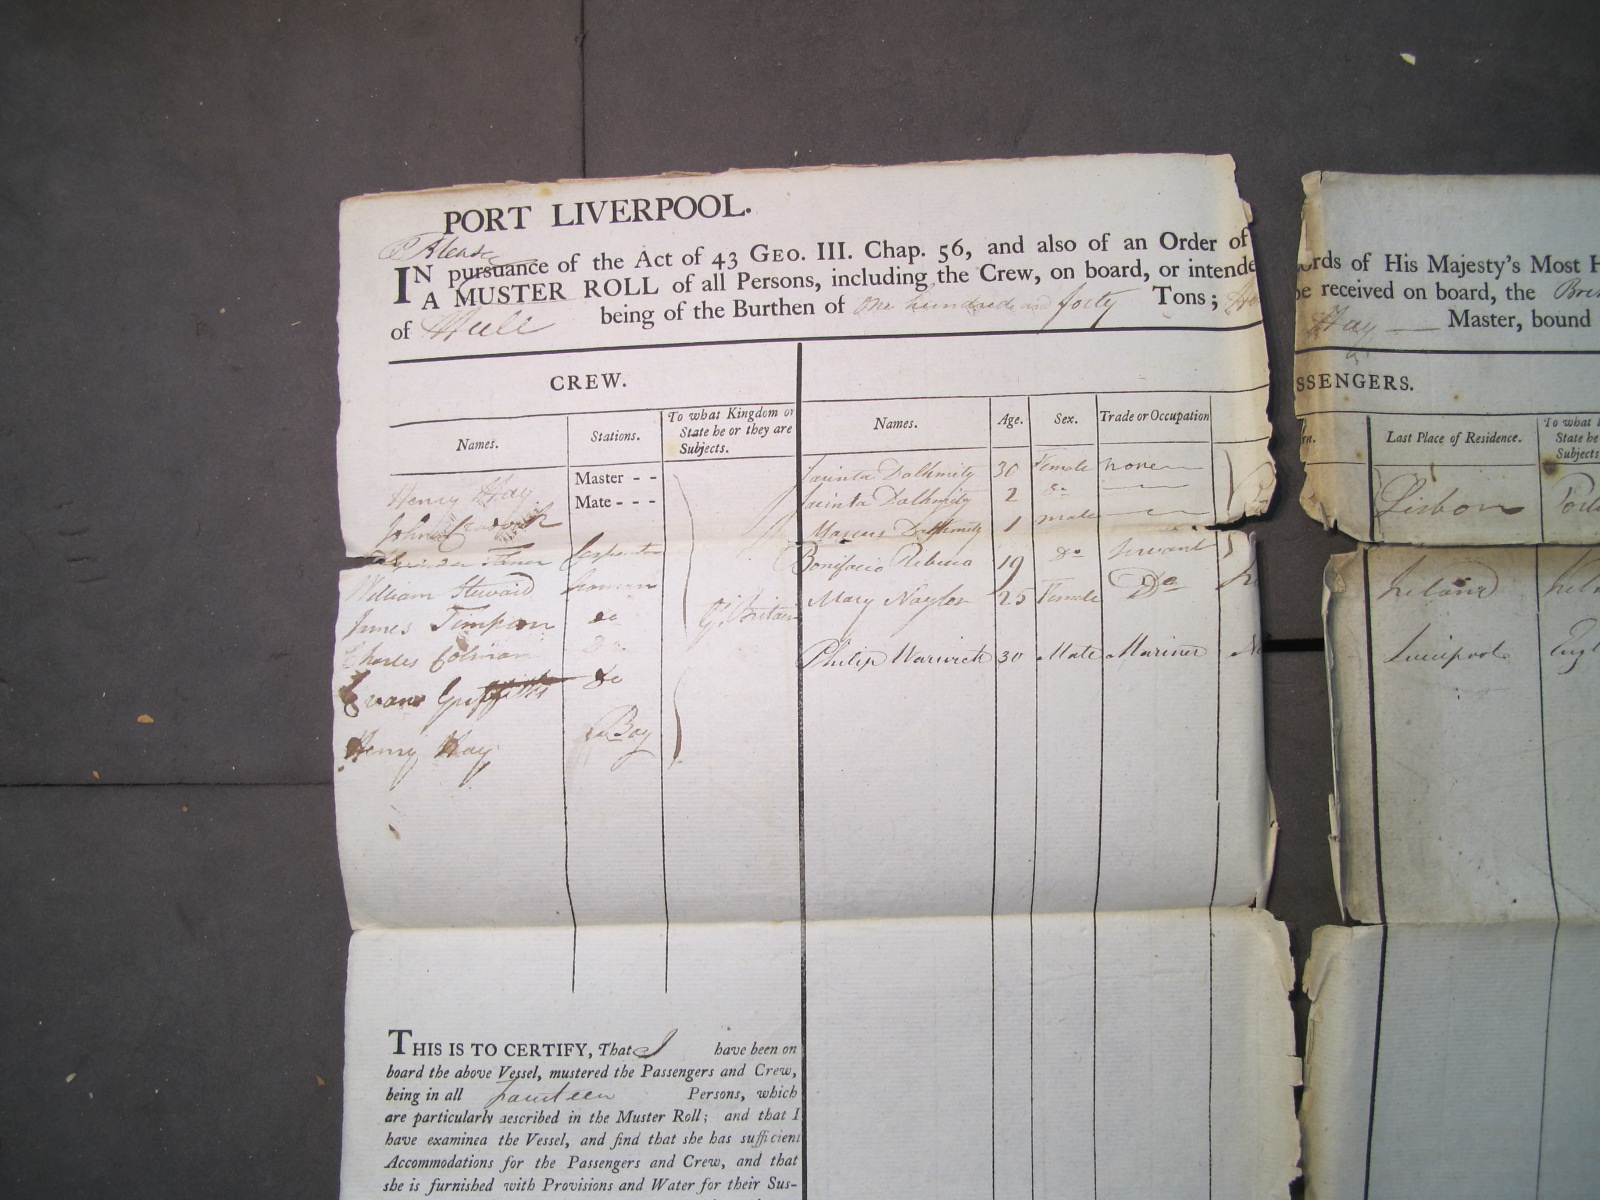 PORT LIVERPOOL.
IN pursuance of the Act of 43 GEO. III. Chap. 56, and also of an Order of
ords of His Majesty's Most H
A MUSTER ROLL of all Persons, including the Crew, on board, or intende
be received on board, the
of Hull being of the Burthen of One hundred and forty Tons;
Hay Master, bound
CREW.
SSENGERS.
Names. Stations. To what Kingdom or State he or they are Subjects. Names. Age. Sex. Trade or Occupation
rn. Last Place of Residence. To what State he Subjects
Henry Hay Master - -
John Mate - - -
Carpenter
William Steward Seaman
James Timpson do
Charles Colman Do
Evans Griffiths do
Henry Hay Boy
Gt. Britain
Jacinta Dalhmity 30 Female none
Jacinta Dalhmity 2 do
Marcus Dalhmity 1 male
Bonifacio 19 Do Servant
Mary Naylor 25 Female Do
Philip Warwick 30 Male Mariner
Lisbon
Ireland
Liverpool Engl
THIS IS TO CERTIFY, That I have been on
board the above Vessel, mustered the Passengers and Crew,
being in all fourteen Persons, which
are particularly described in the Muster Roll; and that I
have examined the Vessel, and find that she has sufficient
Accommodations for the Passengers and Crew, and that
she is furnished with Provisions and Water for their Sus-